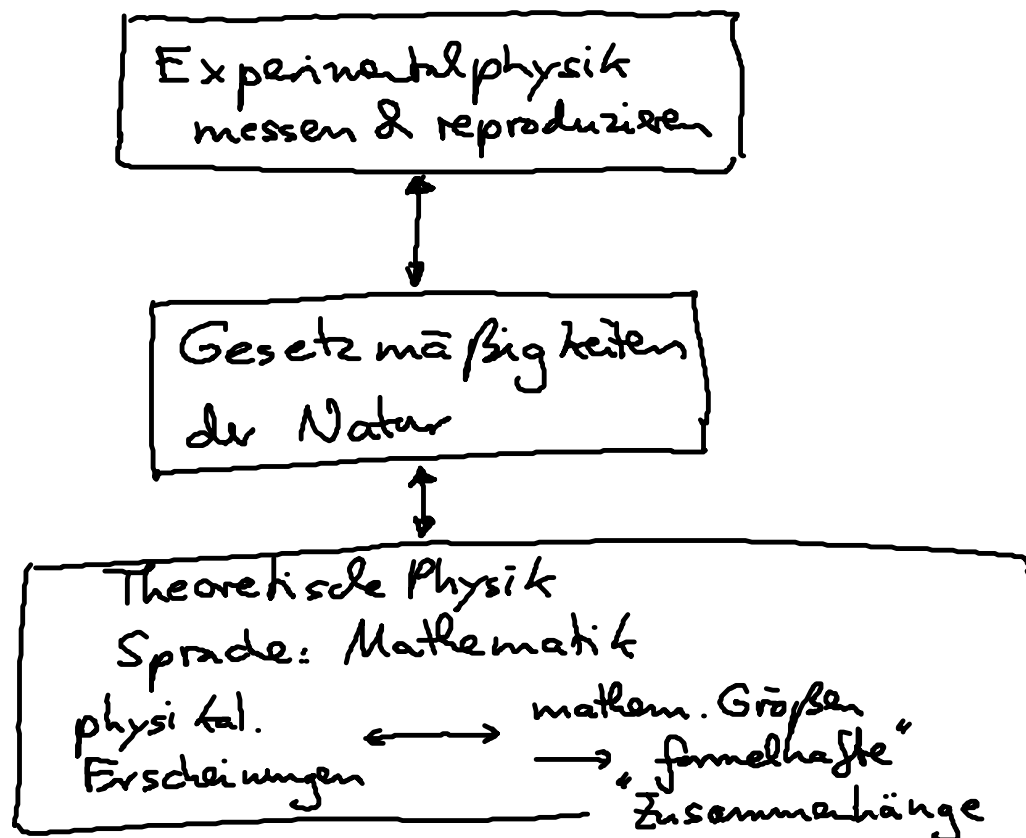 Experimentalphysik
messen & reproduzieren
Gesetzmäßigkeiten
der Natur
Theoretische Physik
Sprache: Mathematik
physikal. ↔ mathem. Größen
Erscheinungen → "formelhafte"
Zusammenhänge